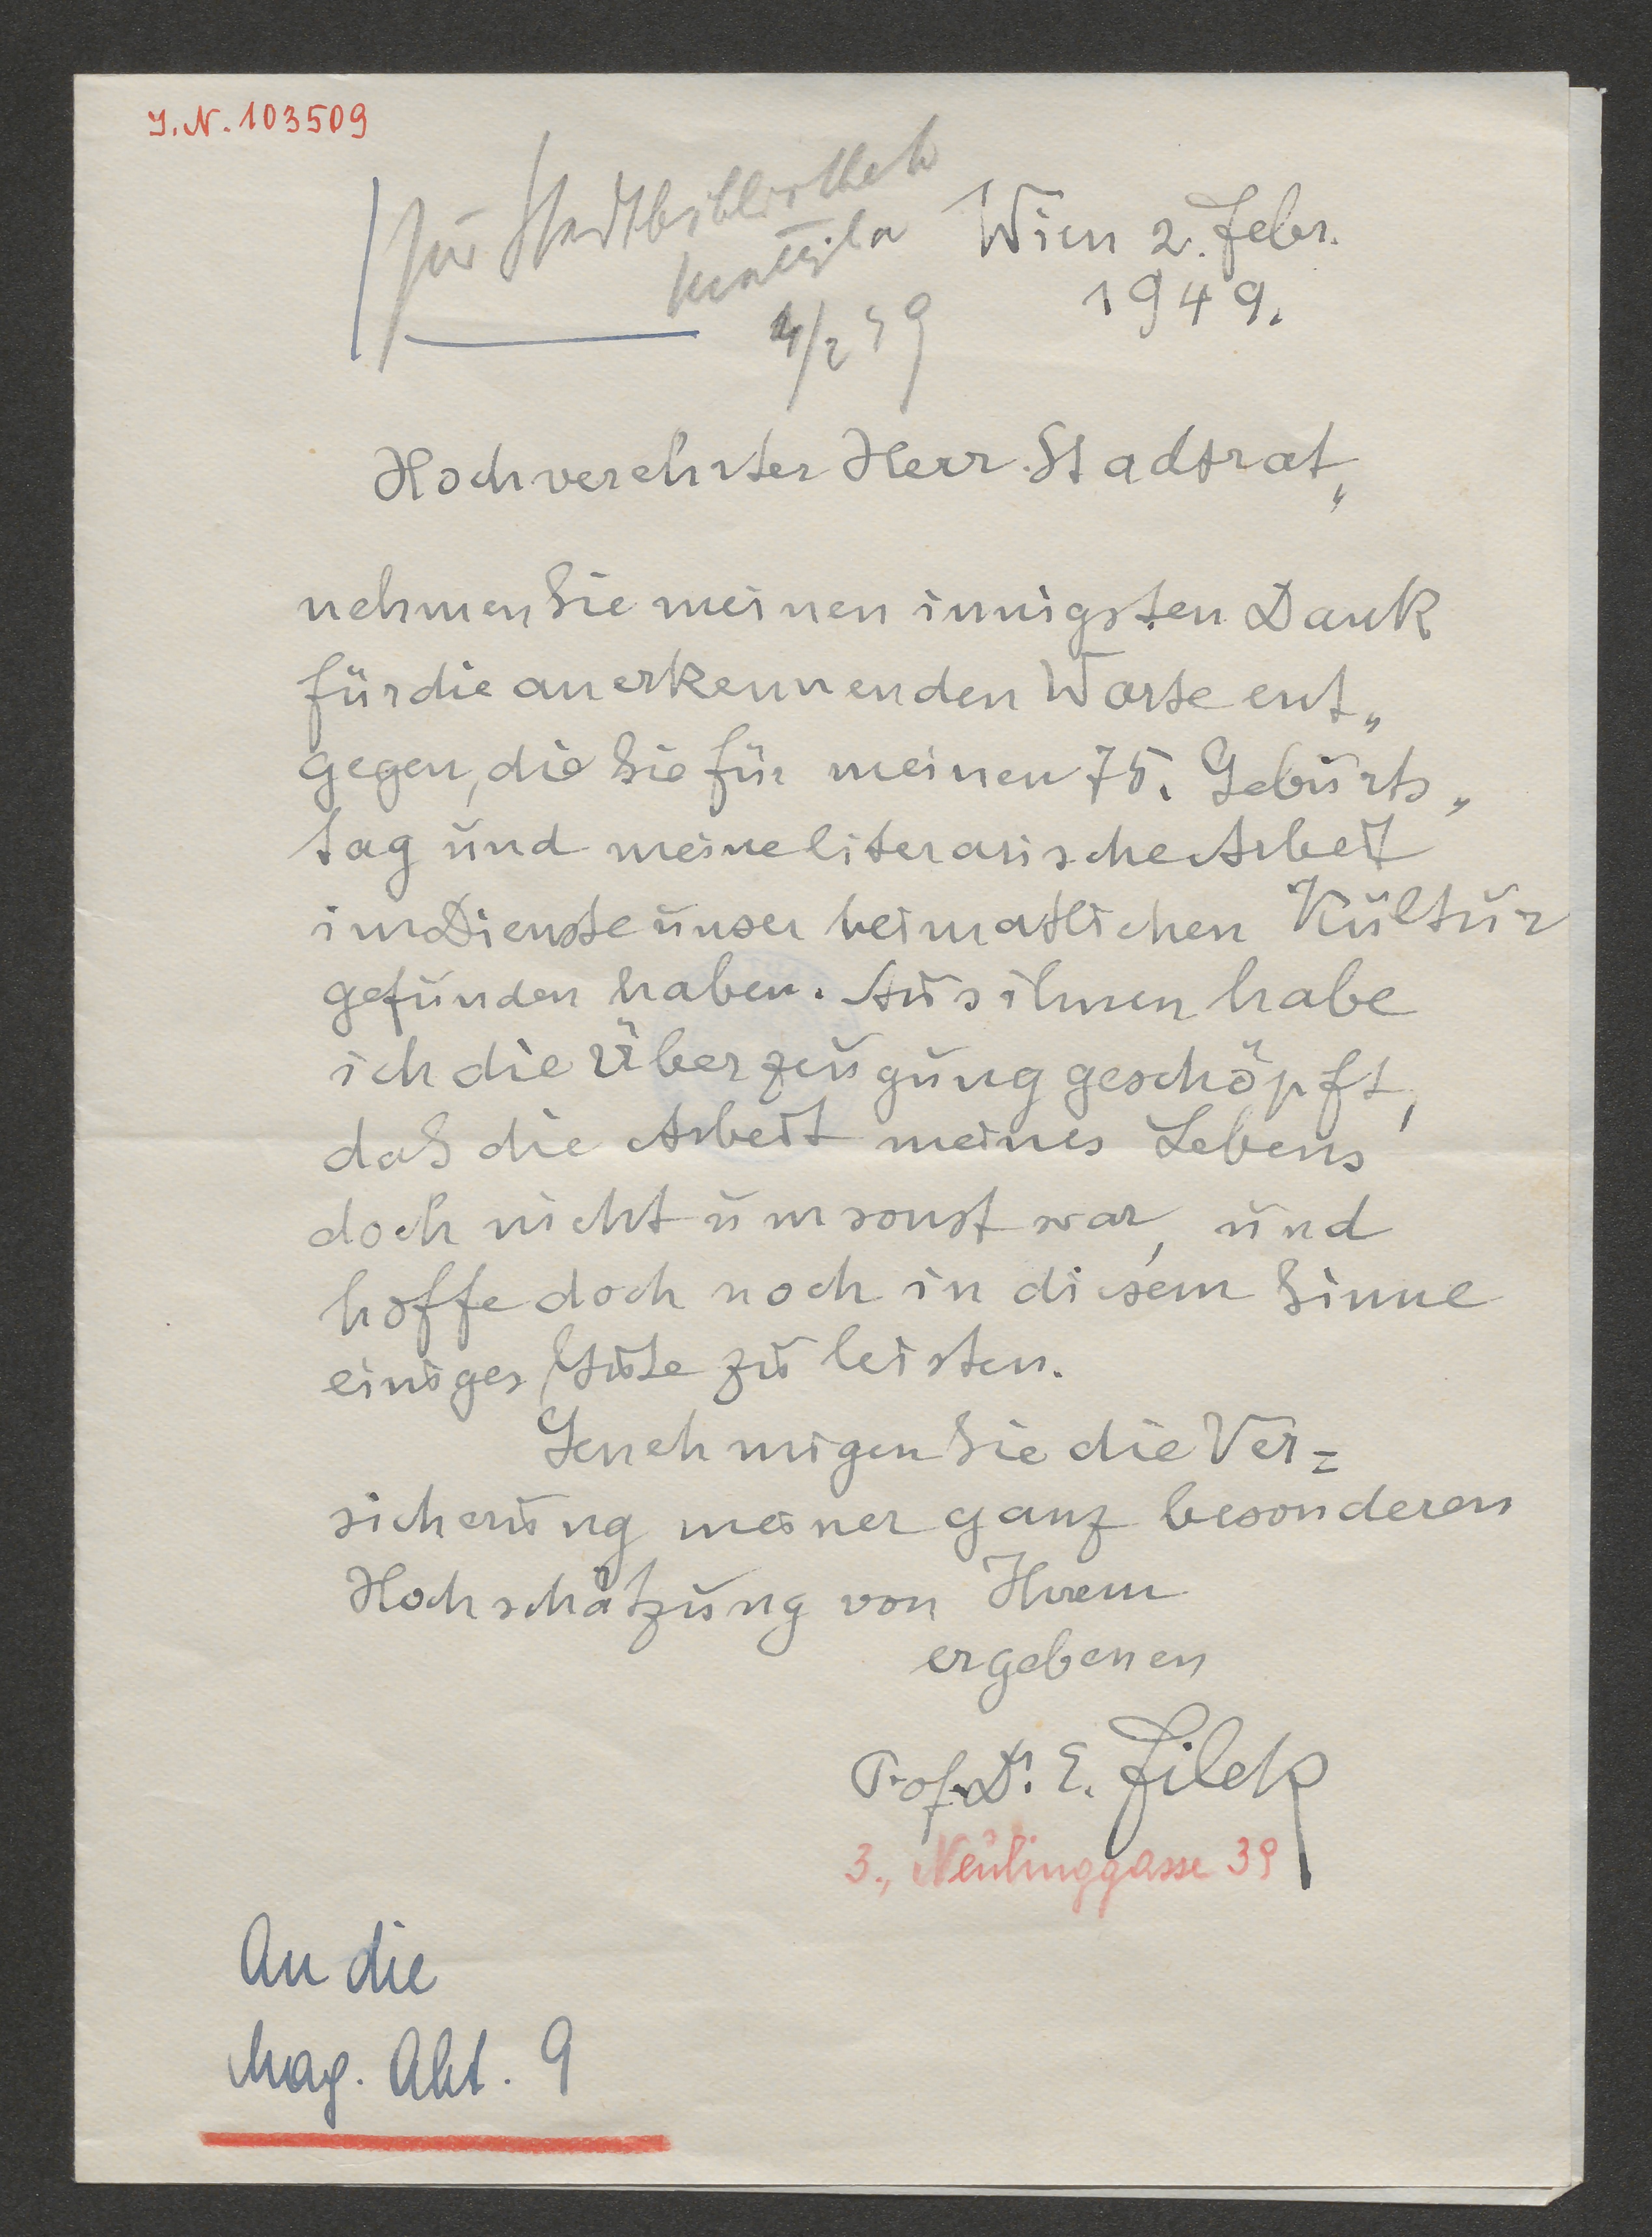 I.N. 103509
für Stadtbibliothek
Wien 2. Febr.
1949.
4/2 49
Hochverehrter Herr Stadtrat,
nehmen Sie meinen innigsten Dank
für die anerkennenden Worte ent„
gegen, die Sie für meinen 75. Geburts„
tag und meine literarische Arbeit
im Dienste unser heimatlichen Kultur
gefunden haben. Aus ihnen habe
ich die Überzeugung geschöpft,
daß die Arbeit meines Lebens
doch nicht umsonst war, und
hoffe doch noch in diesem Sinne
einiges Gute zu leisten.
Genehmigen Sie die Ver=
sicherung meiner ganz besonderen
Hochschätzung von Ihrem
ergebenen
Prof. Dr. E. Filek
3., Neulinggasse 39
An die
Mag. Abt. 9